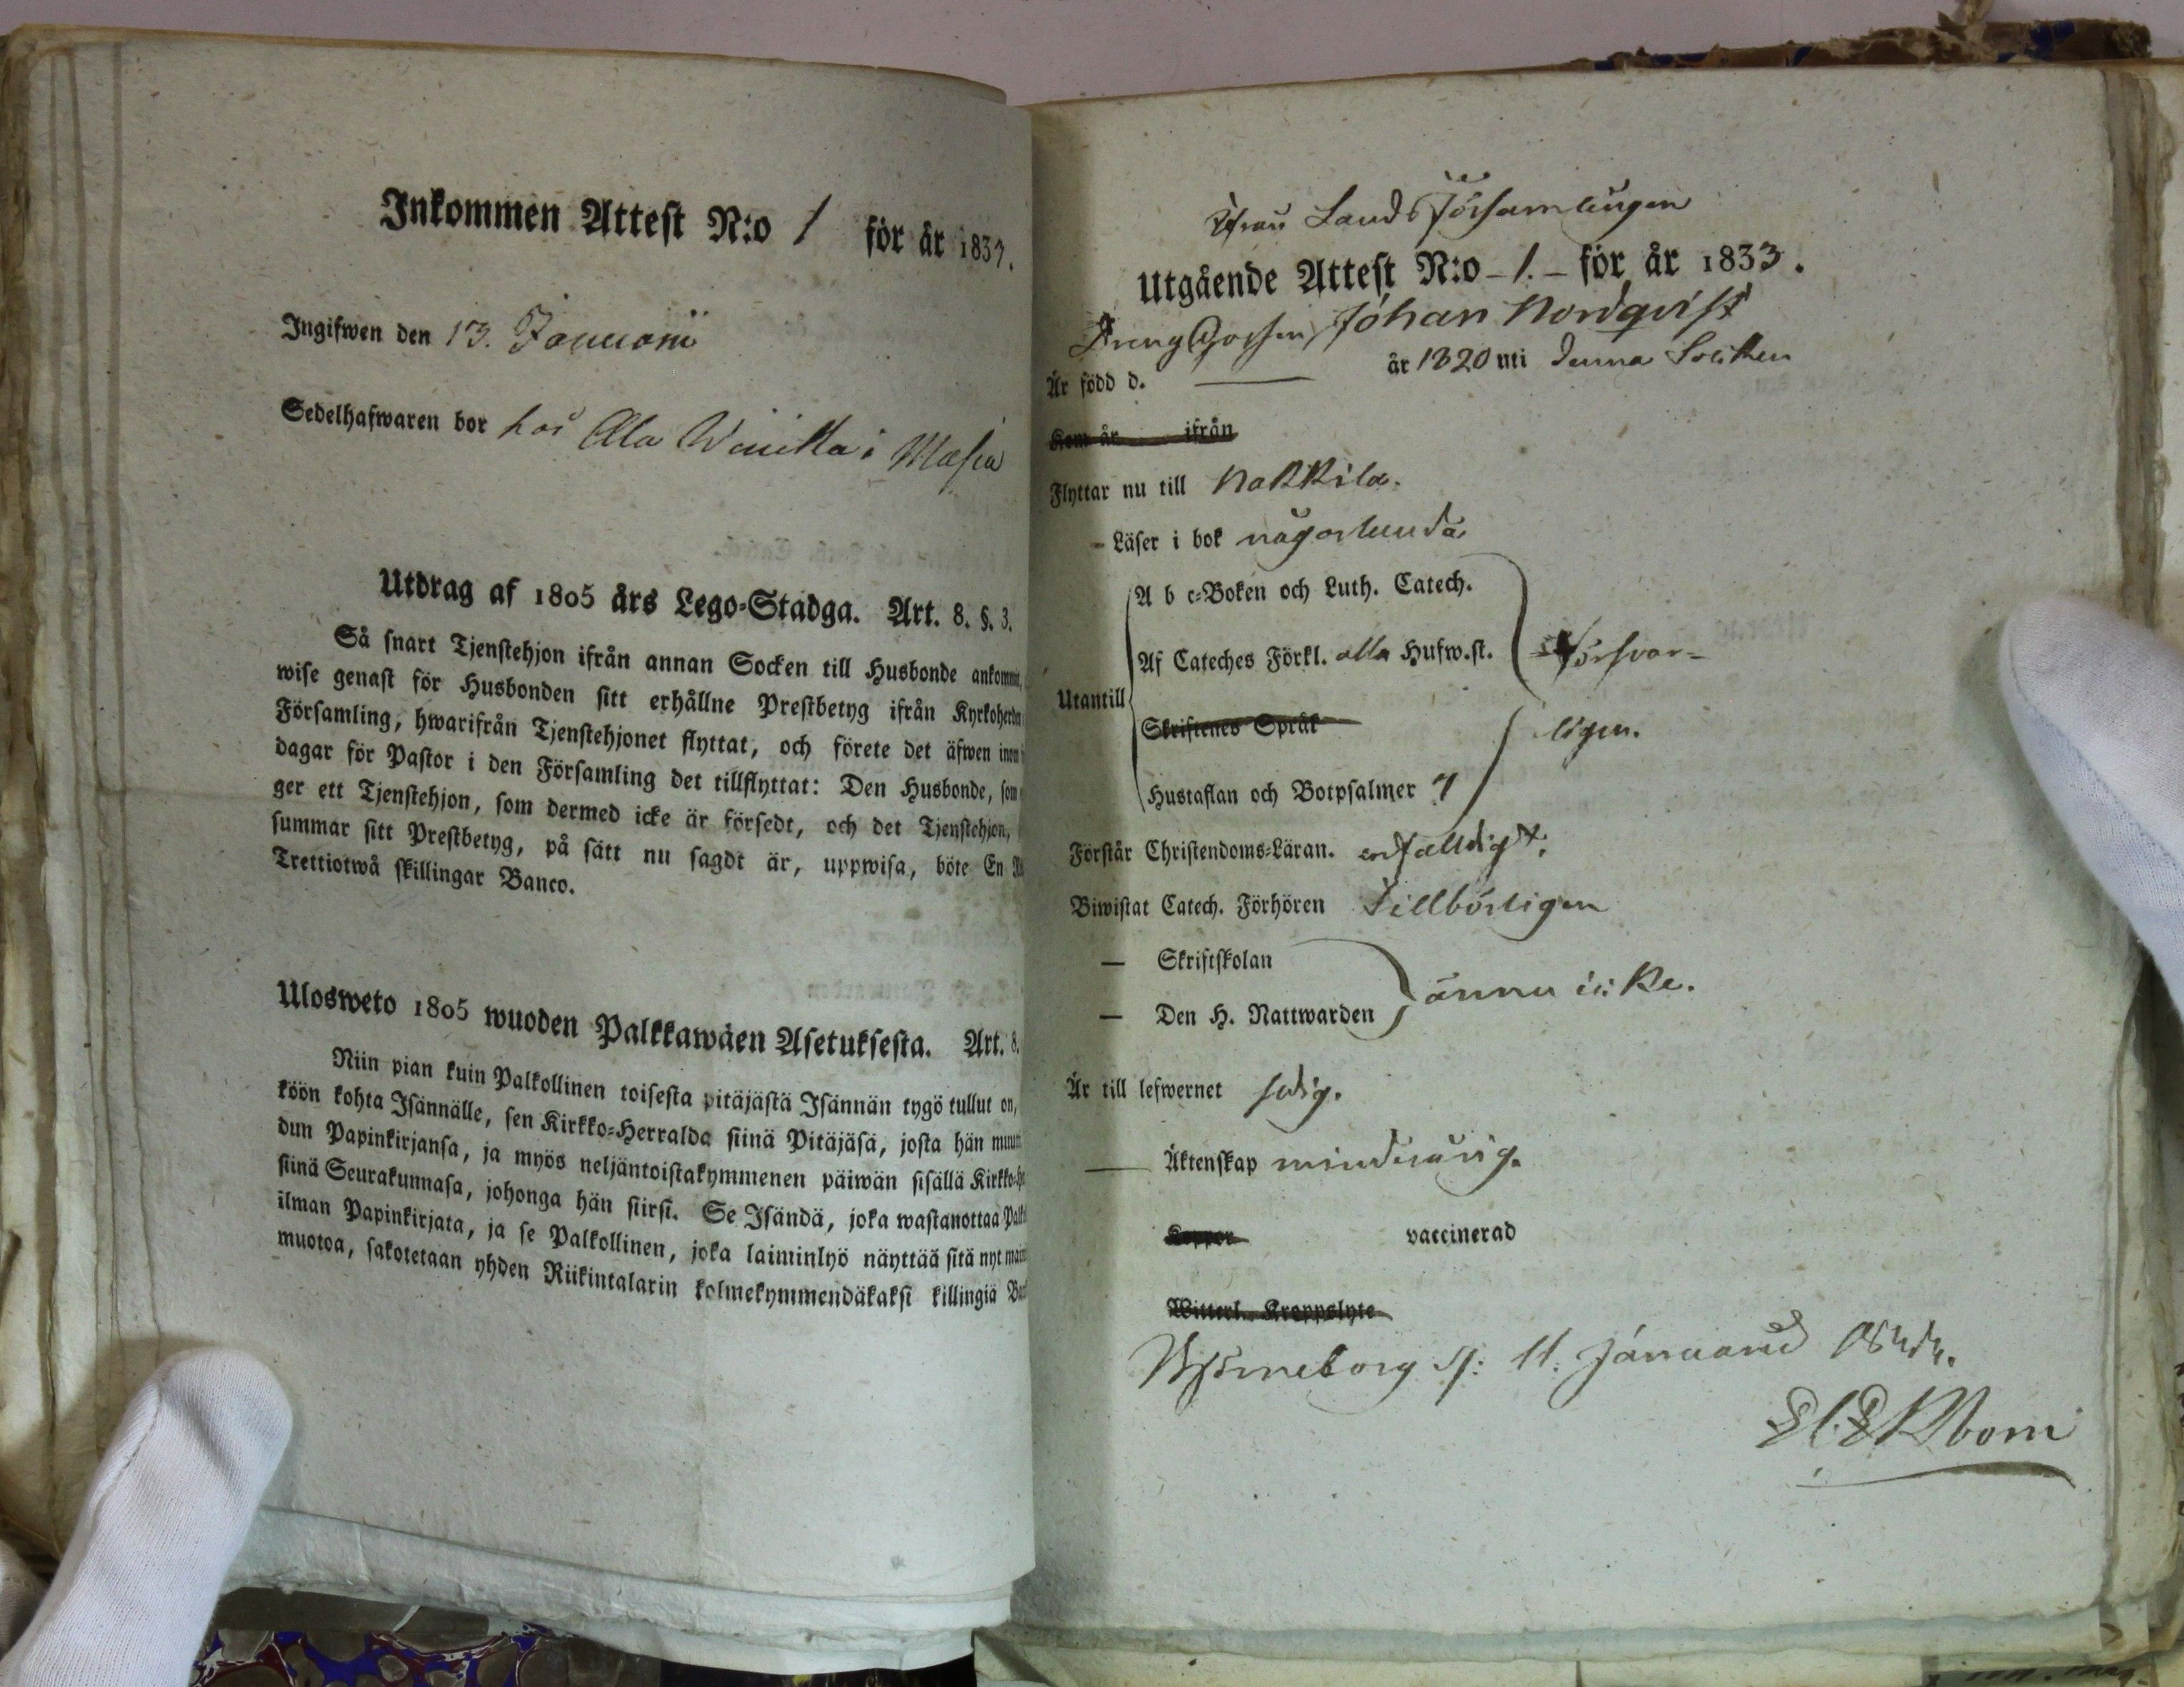 Inkommen Attest N:o 1 för år 1833.
Ingifwen den 13. Januarii
Sedelhafwaren bor hos Ala Winikka i Masia
Utdrag af 1805 års Lego-Stadga. Art. 8. §. 3.
Så snart Tjenstehjon ifrån annan Socken till Husbonde ankommit,
wise genast för Husbonden sitt erhållne Prestbetyg ifrån Kyrkoherden
Församling, hwarifrån Tjenstehjonet flyttat, och förete det äfwen inom
dagar för Pastor i den Församling det tillflyttat: Den Husbonde, som
ger ett Tjenstehjon, som dermed icke är försedt, och det Tjenstehjon,
summar sitt Prestbetyg, på sätt nu sagdt är, uppwisa, böte En
Trettiotwå skillingar Banco.
Ulosweto 1805 wuoden Palkkawäen Asetuksesta. Art. 8.
Niin pian kuin Palkollinen toisesta pitäjästä Isännän tygö tullut on,
köön kohta Isännälle, sen Kirkko-Herralda siinä Pitäjäsä, josta hän muut
dun Papinkirjansa, ja myös neljäntoistakymmenen päiwän sisällä Kirkko-
siinä Seurakunnasa, johonga hän siirsi. Se Isändä, joka wastanottaa Palk
ilman Papinkirjata, ja se Palkollinen, joka laiminlyö näyttää sitä nyt main
muotoa, sakotetaan yhden Riikintalarin kolmekymmendäkaksi killingiä Ban
Från Lands Församlingen
Utgående Attest N:o - 1. - för år 1833.
Dreng Gossen Johan Nordqvist
Är född d. — år 1820 uti denna Socken
Kom år ifrån
Flyttar nu till Nakkila.
- Läser i bok någorlunda
A b c-Boken och Luth. Catech.
Af Cateches Förkl. alla Hufw.st. Försvar-
Utantill
Skriftenes Språk ligen.
Hustaflan och Botpsalmer 7
Förstår Christendoms-Läran. enfaldigt.
Biwistat Catech. Förhören Tillbörligen
— Skriftskolan
— Den H. Nattwarden ännu icke.
Är till lefwernet sedig.
— Äktenskap minderårig.
Koppor vaccinerad
Witterl. Kroppslyte
Björneborg d: 11. Januarii